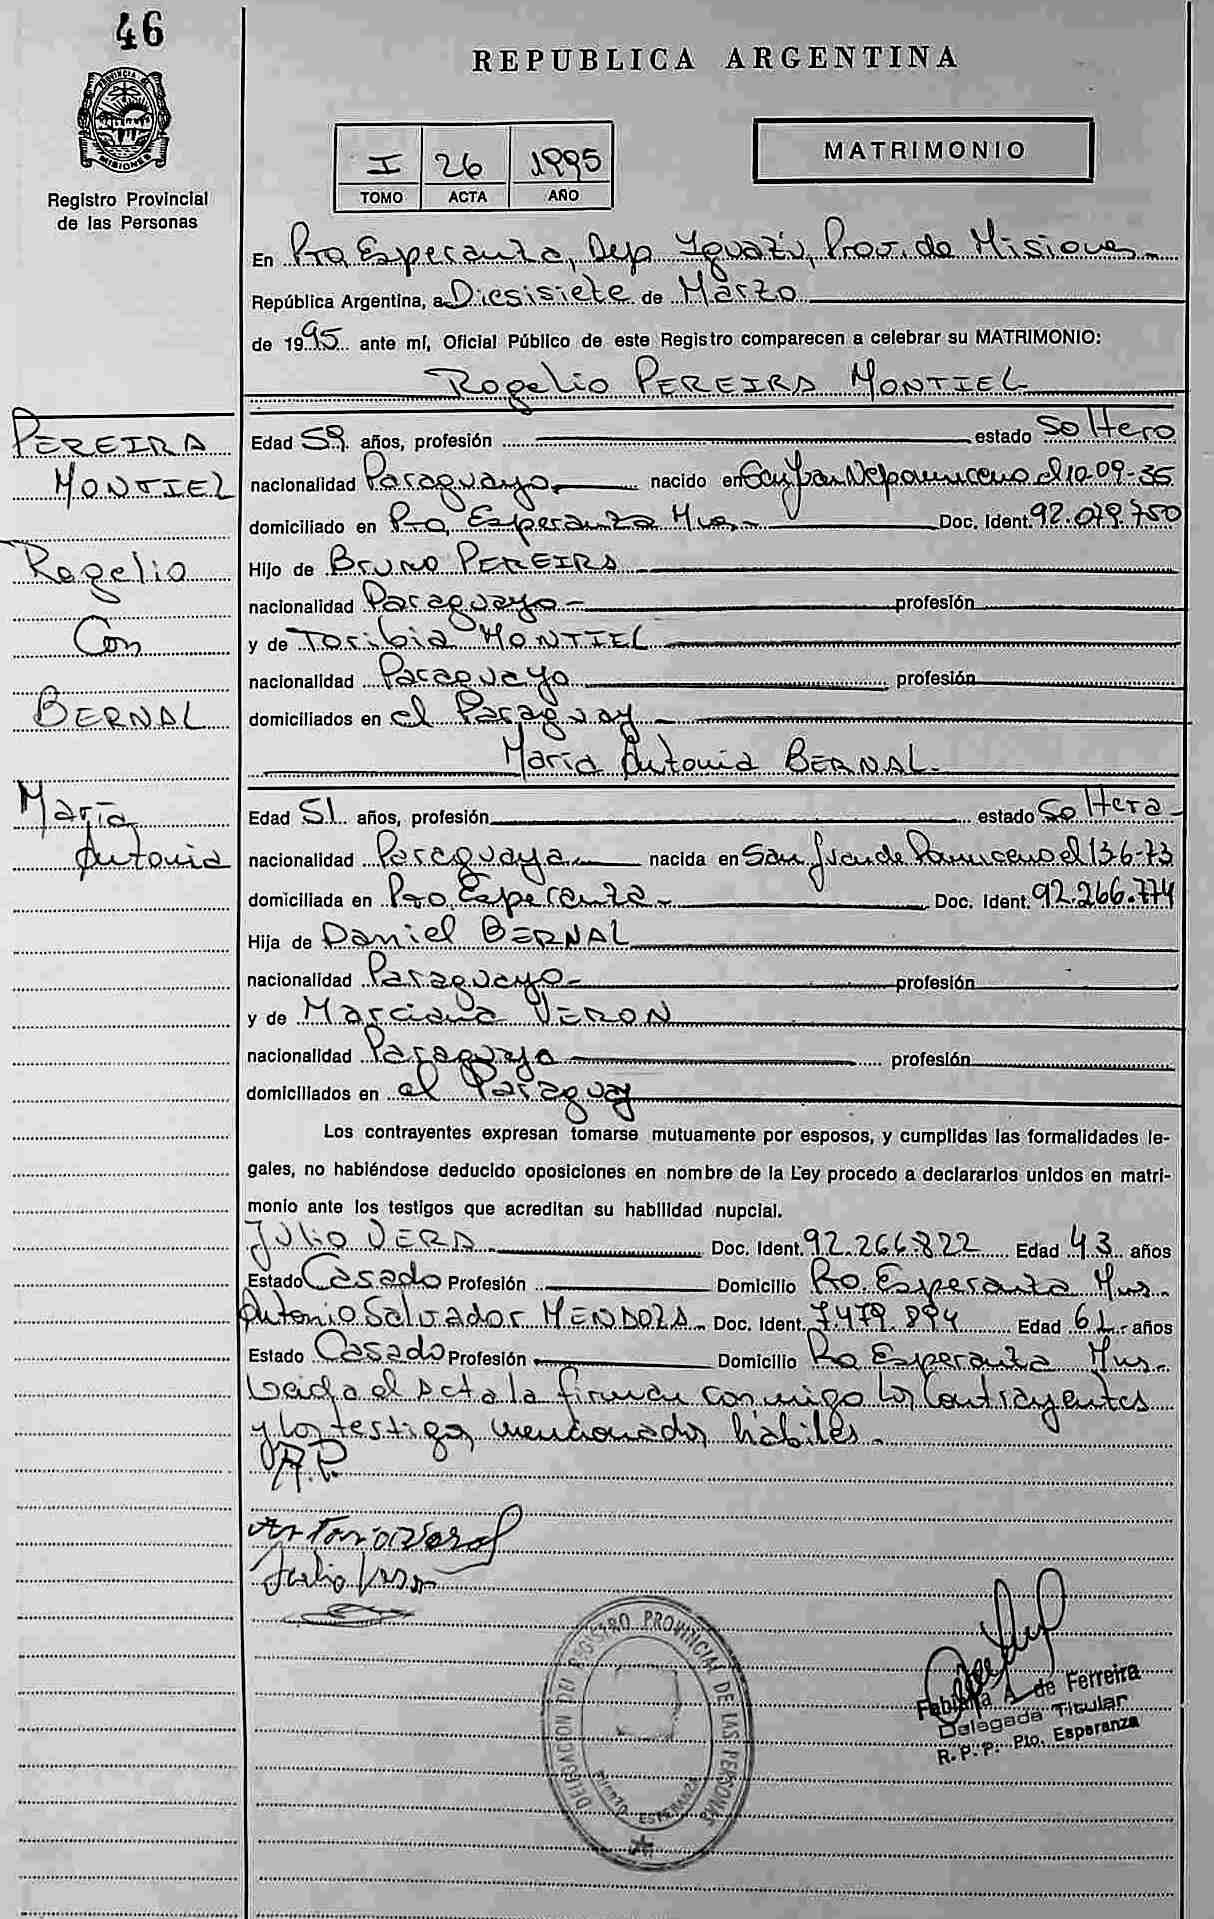 46
REPUBLICA ARGENTINA
PROVINCIA DE MISIONES
Registro Provincial
de las Personas
I 26 1995
TOMO ACTA AÑO
MATRIMONIO
En Pto Esperanza, Dep Iguazú, Prov. de Misiones
República Argentina, a Diesisiete de Marzo
de 1995 ante mí, Oficial Público de este Registro comparecen a celebrar su MATRIMONIO:
Rogelio PEREIRA MONTIEL
PEREIRA
MONTIEL
Rogelio
Con
BERNAL
María
Antonia
Edad 59 años, profesión estado Soltero
nacionalidad Paraguayo nacido en San Juan Nepomuceno el 10-09-35
domiciliado en Pto Esperanza Mnes.- Doc. Ident. 92.079.750
Hijo de Bruno PEREIRA
nacionalidad Paraguayo- profesión
y de Toribia MONTIEL
nacionalidad Paraguaya profesión
domiciliados en el Paraguay
María Antonia BERNAL-
Edad 51 años, profesión estado Soltera-
nacionalidad Paraguaya nacida en San Juan de Pomuceno el 13-6-73
domiciliada en Pto Esperanza- Doc. Ident. 92.266.774
Hija de Daniel BERNAL
nacionalidad Paraguayo- profesión
y de Marciana VERON
nacionalidad Paraguaya profesión
domiciliados en el Paraguay
Los contrayentes expresan tomarse mutuamente por esposos, y cumplidas las formalidades le-
gales, no habiéndose deducido oposiciones en nombre de la Ley procedo a declararlos unidos en matri-
monio ante los testigos que acreditan su habilidad nupcial.
Julio VERA Doc. Ident. 92.266.822 Edad 43 años
Estado Casado Profesión Domicilio Pto. Esperanza Mns.
Antonio Salvador MENDOZA Doc. Ident. 7.479.894 Edad 61 años
Estado Casado Profesión Domicilio Pto Esperanza Mns.
Leida el Acta la firman conmigo los Contrayentes
y los testigos mencionados hábiles.
R.P.
Julio Vera
DELEGACION DEL REGISTRO PROVINCIAL DE LAS PERSONAS
PUERTO ESPERANZA
Fabiana A de Ferreira
Delegada Titular
R.P.P. Pto. Esperanza